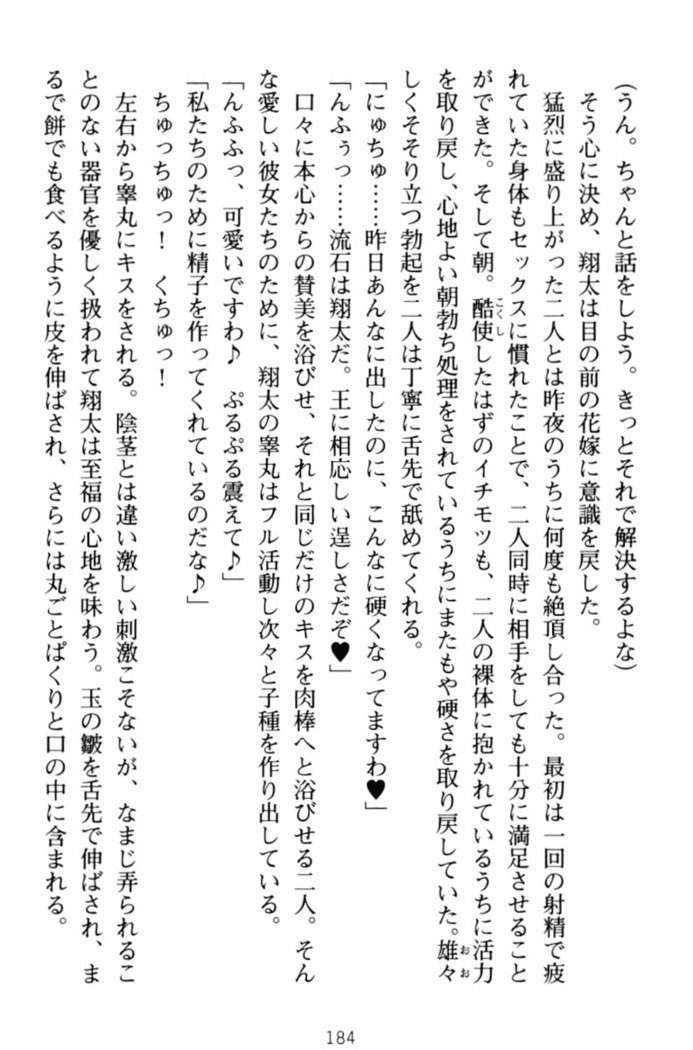 (うん。ちゃんと話をしよう。きっとそれで解決するよな)
そう心に決め、翔太は目の前の花嫁に意識を戻した。
猛烈に盛り上がった二人とは昨夜のうちに何度も絶頂し合った。最初は一回の射精で疲
れていた身体もセックスに慣れたことで、二人同時に相手をしても十分に満足させること
ができた。そして朝。酷使したはずのイチモツも、二人の裸体に抱かれているうちに活力
を取り戻し、心地よい朝勃ち処理をされているうちにまたもや硬さを取り戻していた。雄々
しくそそり立つ勃起を二人は丁寧に舌先で舐めてくれる。
「にゅちゅ……昨日あんなに出したのに、こんなに硬くなってますわ♥」
「んふぅっ……流石は翔太だ。王に相応しい逞しさだぞ♥」
口々に本心からの賛美を浴びせ、それと同じだけのキスを肉棒へと浴びせる二人。そん
な愛しい彼女たちのために、翔太の睾丸はフル活動し次々と子種を作り出している。
「んふふっ、可愛いですわ♪　ぷるぷる震えて♪」
「私たちのために精子を作ってくれているのだな♪」
ちゅっちゅっ！　くちゅっ！
左右から睾丸にキスをされる。陰茎とは違い激しい刺激こそないが、なまじ弄られるこ
とのない器官を優しく扱われて翔太は至福の心地を味わう。玉の皺を舌先で伸ばされ、ま
るで餅でも食べるように皮を伸ばされ、さらには丸ごとぱくりと口の中に含まれる。
184